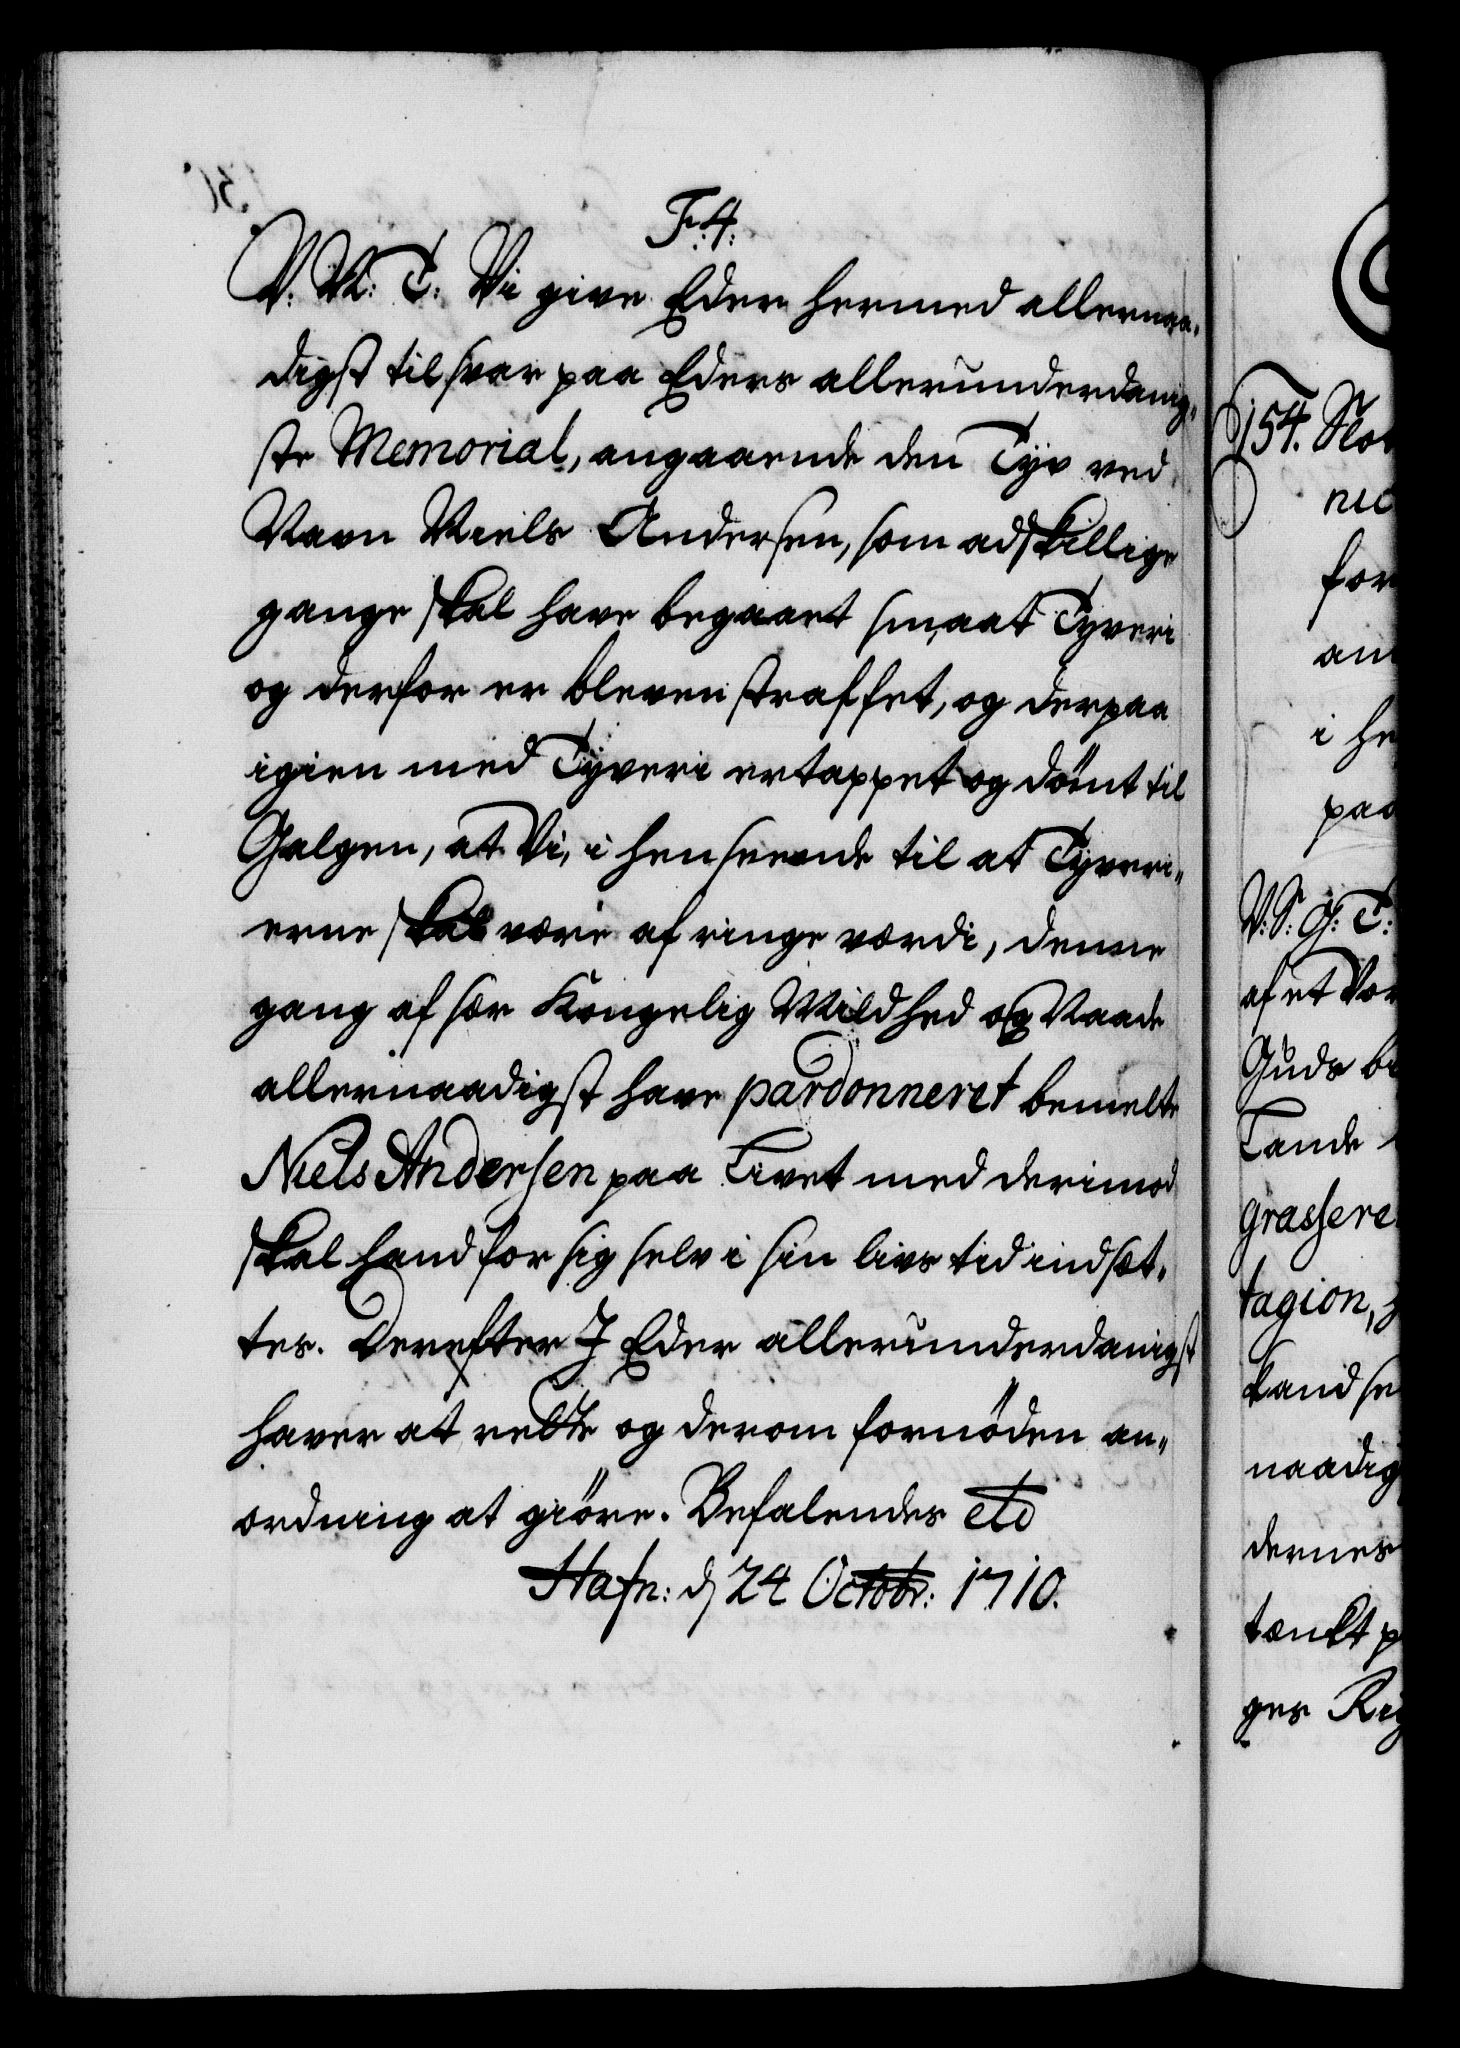 F. 4.
V. M: T: Vi give Eder hermed allernaa-
digst til svar paa Eders allerunderdanig-
ste Memorial, angaaende den Tyv ved
Navn Niels Andersen, som adskillige
gange skal have begaaet smaat Tyveri
og derfor er bleven straffet, og derpaa
igien med Tyveri ertappet og dömt til
Galgen, at Vi, i henseende til at Tyveri-
erne skal være af ringe værdi, denne
gang af sær Kongelig Mildhed og Naade
allernaadigst have pardonneret bemelte
Niels Andersen paa Livet med derimod
skal hand for sig selv i sin livs tid indsæt-
tes. Derefter I Eder allerunderdanigst
haver at rette og derom fornöden an-
ordning at giöre. Befalendes etc
Hafn: d 24 Octobr: 1710.
154. Slot
nic
for
an
i he
paa
V. S. G: T:
af et Vor
Guds be
Lande
grassere
tagion,
kand se
naadig
dernes
tænkt p
ges Reg